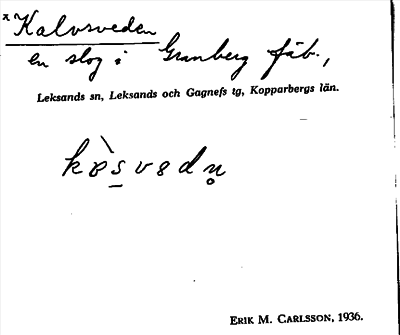 x Kalvsveden
en slog i Granberg fäb.,
Leksands sn, Leksands och Gagnefs tg, Kopparbergs län.
ERIK M. CARLSSON, 1936.